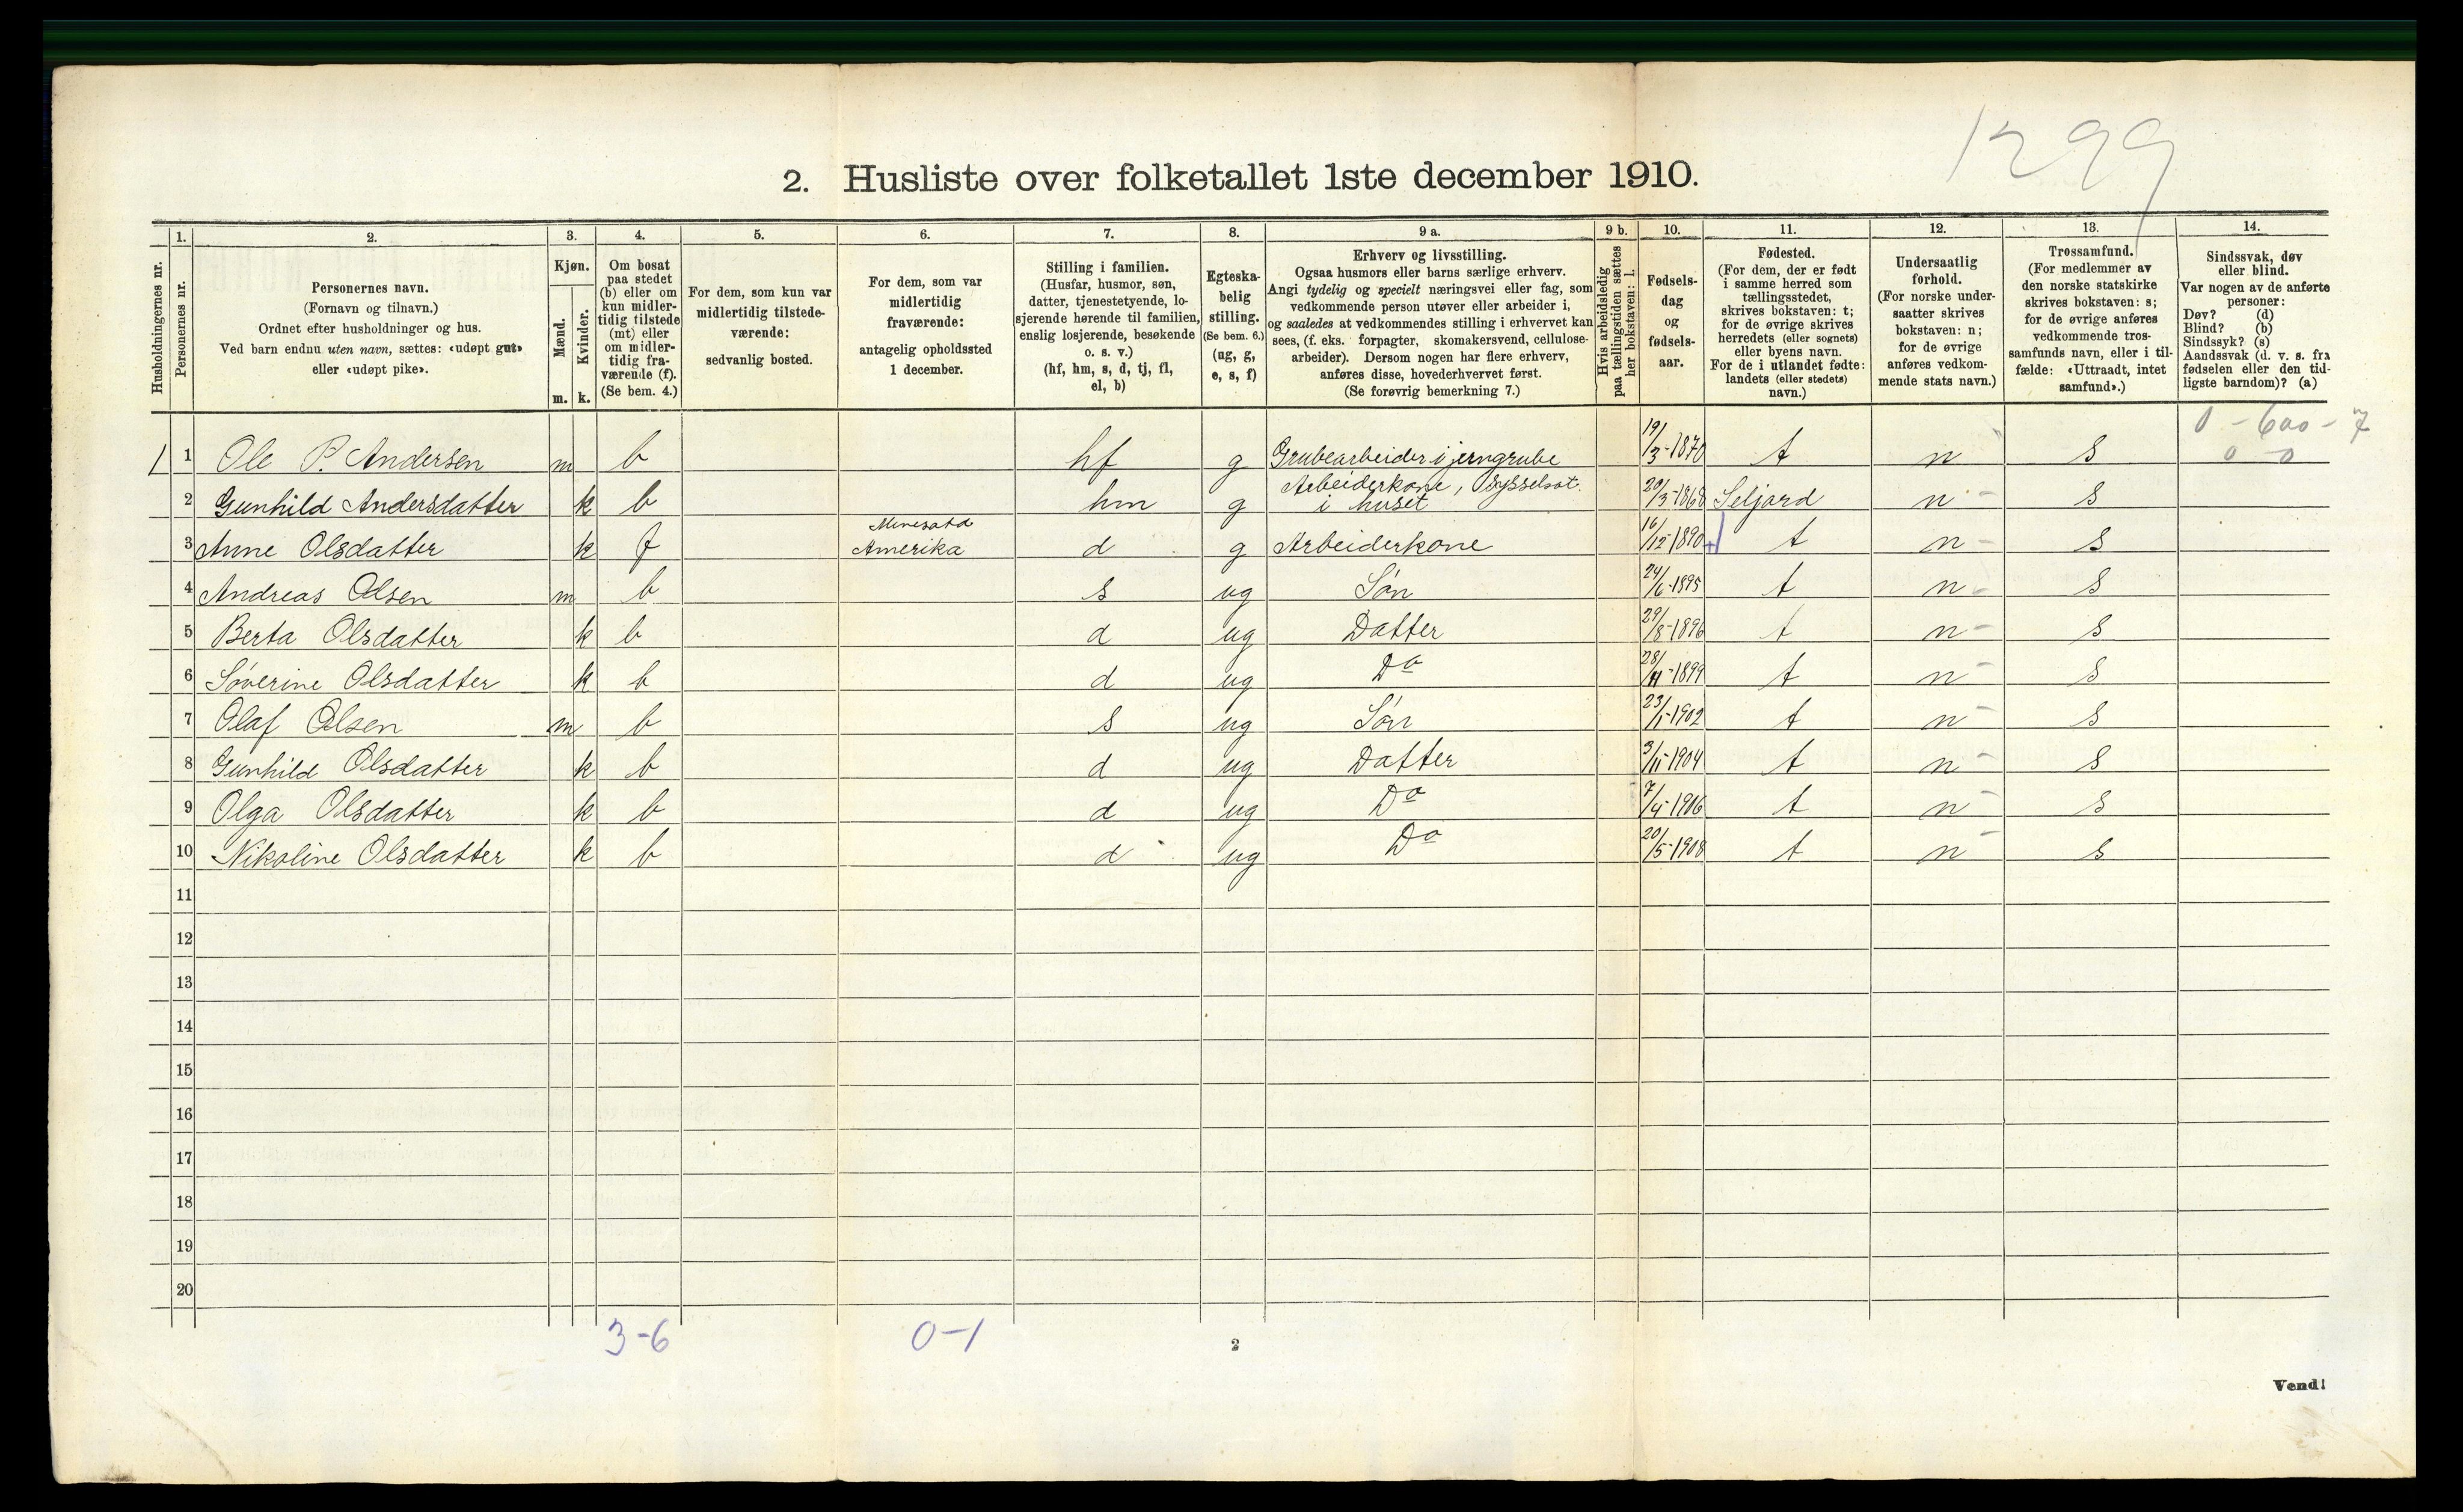 1299
2. Husliste over folketallet 1ste december 1910.
Husholdningernes nr.
1. Personernes nr.
2. Personernes navn.
(Fornavn og tilnavn.)
Ordnet efter husholdninger og hus.
Ved barn endnu uten navn, sættes: «udøpt gut»
eller «udøpt pike».
3. Kjøn.
Mænd. m.
Kvinder. k.
4. Om bosat
paa stedet
(b) eller om
kun midler-
tidig tilstede
(mt) eller
om midler-
tidig fra-
værende (f).
(Se bem. 4.)
5. For dem, som kun var
midlertidig tilstede-
værende:
sedvanlig bosted.
6. For dem, som var
midlertidig
fraværende:
antagelig opholdssted
1 december.
7. Stilling i familien.
(Husfar, husmor, søn,
datter, tjenestetyende, lo-
sjerende hørende til familien,
enslig losjerende, besøkende
o. s. v.)
(hf, hm, s, d, tj, fl,
el, b)
8. Egteska-
belig
stilling.
(Se bem. 6.)
(ug, g,
e, s, f)
9 a. Erhverv og livsstilling.
Ogsaa husmors eller barns særlige erhverv.
Angi tydelig og specielt næringsvei eller fag, som
vedkommende person utøver eller arbeider i,
og saaledes at vedkommendes stilling i erhvervet kan
sees, (f. eks. forpagter, skomakersvend, cellulose-
arbeider). Dersom nogen har flere erhverv,
anføres disse, hovederhvervet først.
(Se forøvrig bemerkning 7.)
9 b. Hvis arbeidsledig
paa tællingstiden sættes
her bokstaven: l.
10. Fødsels-
dag
og
fødsels-
aar.
11. Fødested.
(For dem, der er født
i samme herred som
tællingsstedet,
skrives bokstaven: t;
for de øvrige skrives
herredets (eller sognets)
eller byens navn.
For de i utlandet fødte:
landets (eller stedets)
navn.)
12. Undersaatlig
forhold.
(For norske under-
saatter skrives
bokstaven: n;
for de øvrige
anføres vedkom-
mende stats navn.)
13. Trossamfund.
(For medlemmer av
den norske statskirke
skrives bokstaven: s;
for de øvrige anføres
vedkommende tros-
samfunds navn, eller i til-
fælde: «Uttraadt, intet
samfund».)
14. Sindssvak, døv
eller blind.
Var nogen av de anførte
personer:
Døv? (d)
Blind? (b)
Sindssyk? (s)
Aandssvak (d. v. s. fra
fødselen eller den tid-
ligste barndom)? (a)
0 - 600 - 7
0 0
1 1 Ole P. Andersen m b hf g Grubearbeider i jerngrube 19/3-1870 t n s
2 Gunhild Andersdatter k b hm g Arbeiderkone, sysselsat. i huset 20/3-1868 Seljord n s
3 Anne Olsdatter k f Minesota Amerika d g Arbeiderkone 16/12-1890 t n s
4 Andreas Olsen m b s ug Søn 24/6-1895 t n s
5 Berta Olsdatter k b d ug Datter 29/8-1896 t n s
6 Søverine Olsdatter k b d ug Do 28/11-1899 t n s
7 Olaf Olsen m b s ug Søn 23/1-1902 t n s
8 Gunhild Olsdatter k b d ug Datter 3/11-1904 t n s
9 Olga Olsdatter k b d ug Do 7/4-1906 t n s
10 Nikoline Olsdatter k b d ug Do 20/5-1908 t n s
11
12
13
14
15
16
17
18
19
20
3-6 0-1
2
Vend!